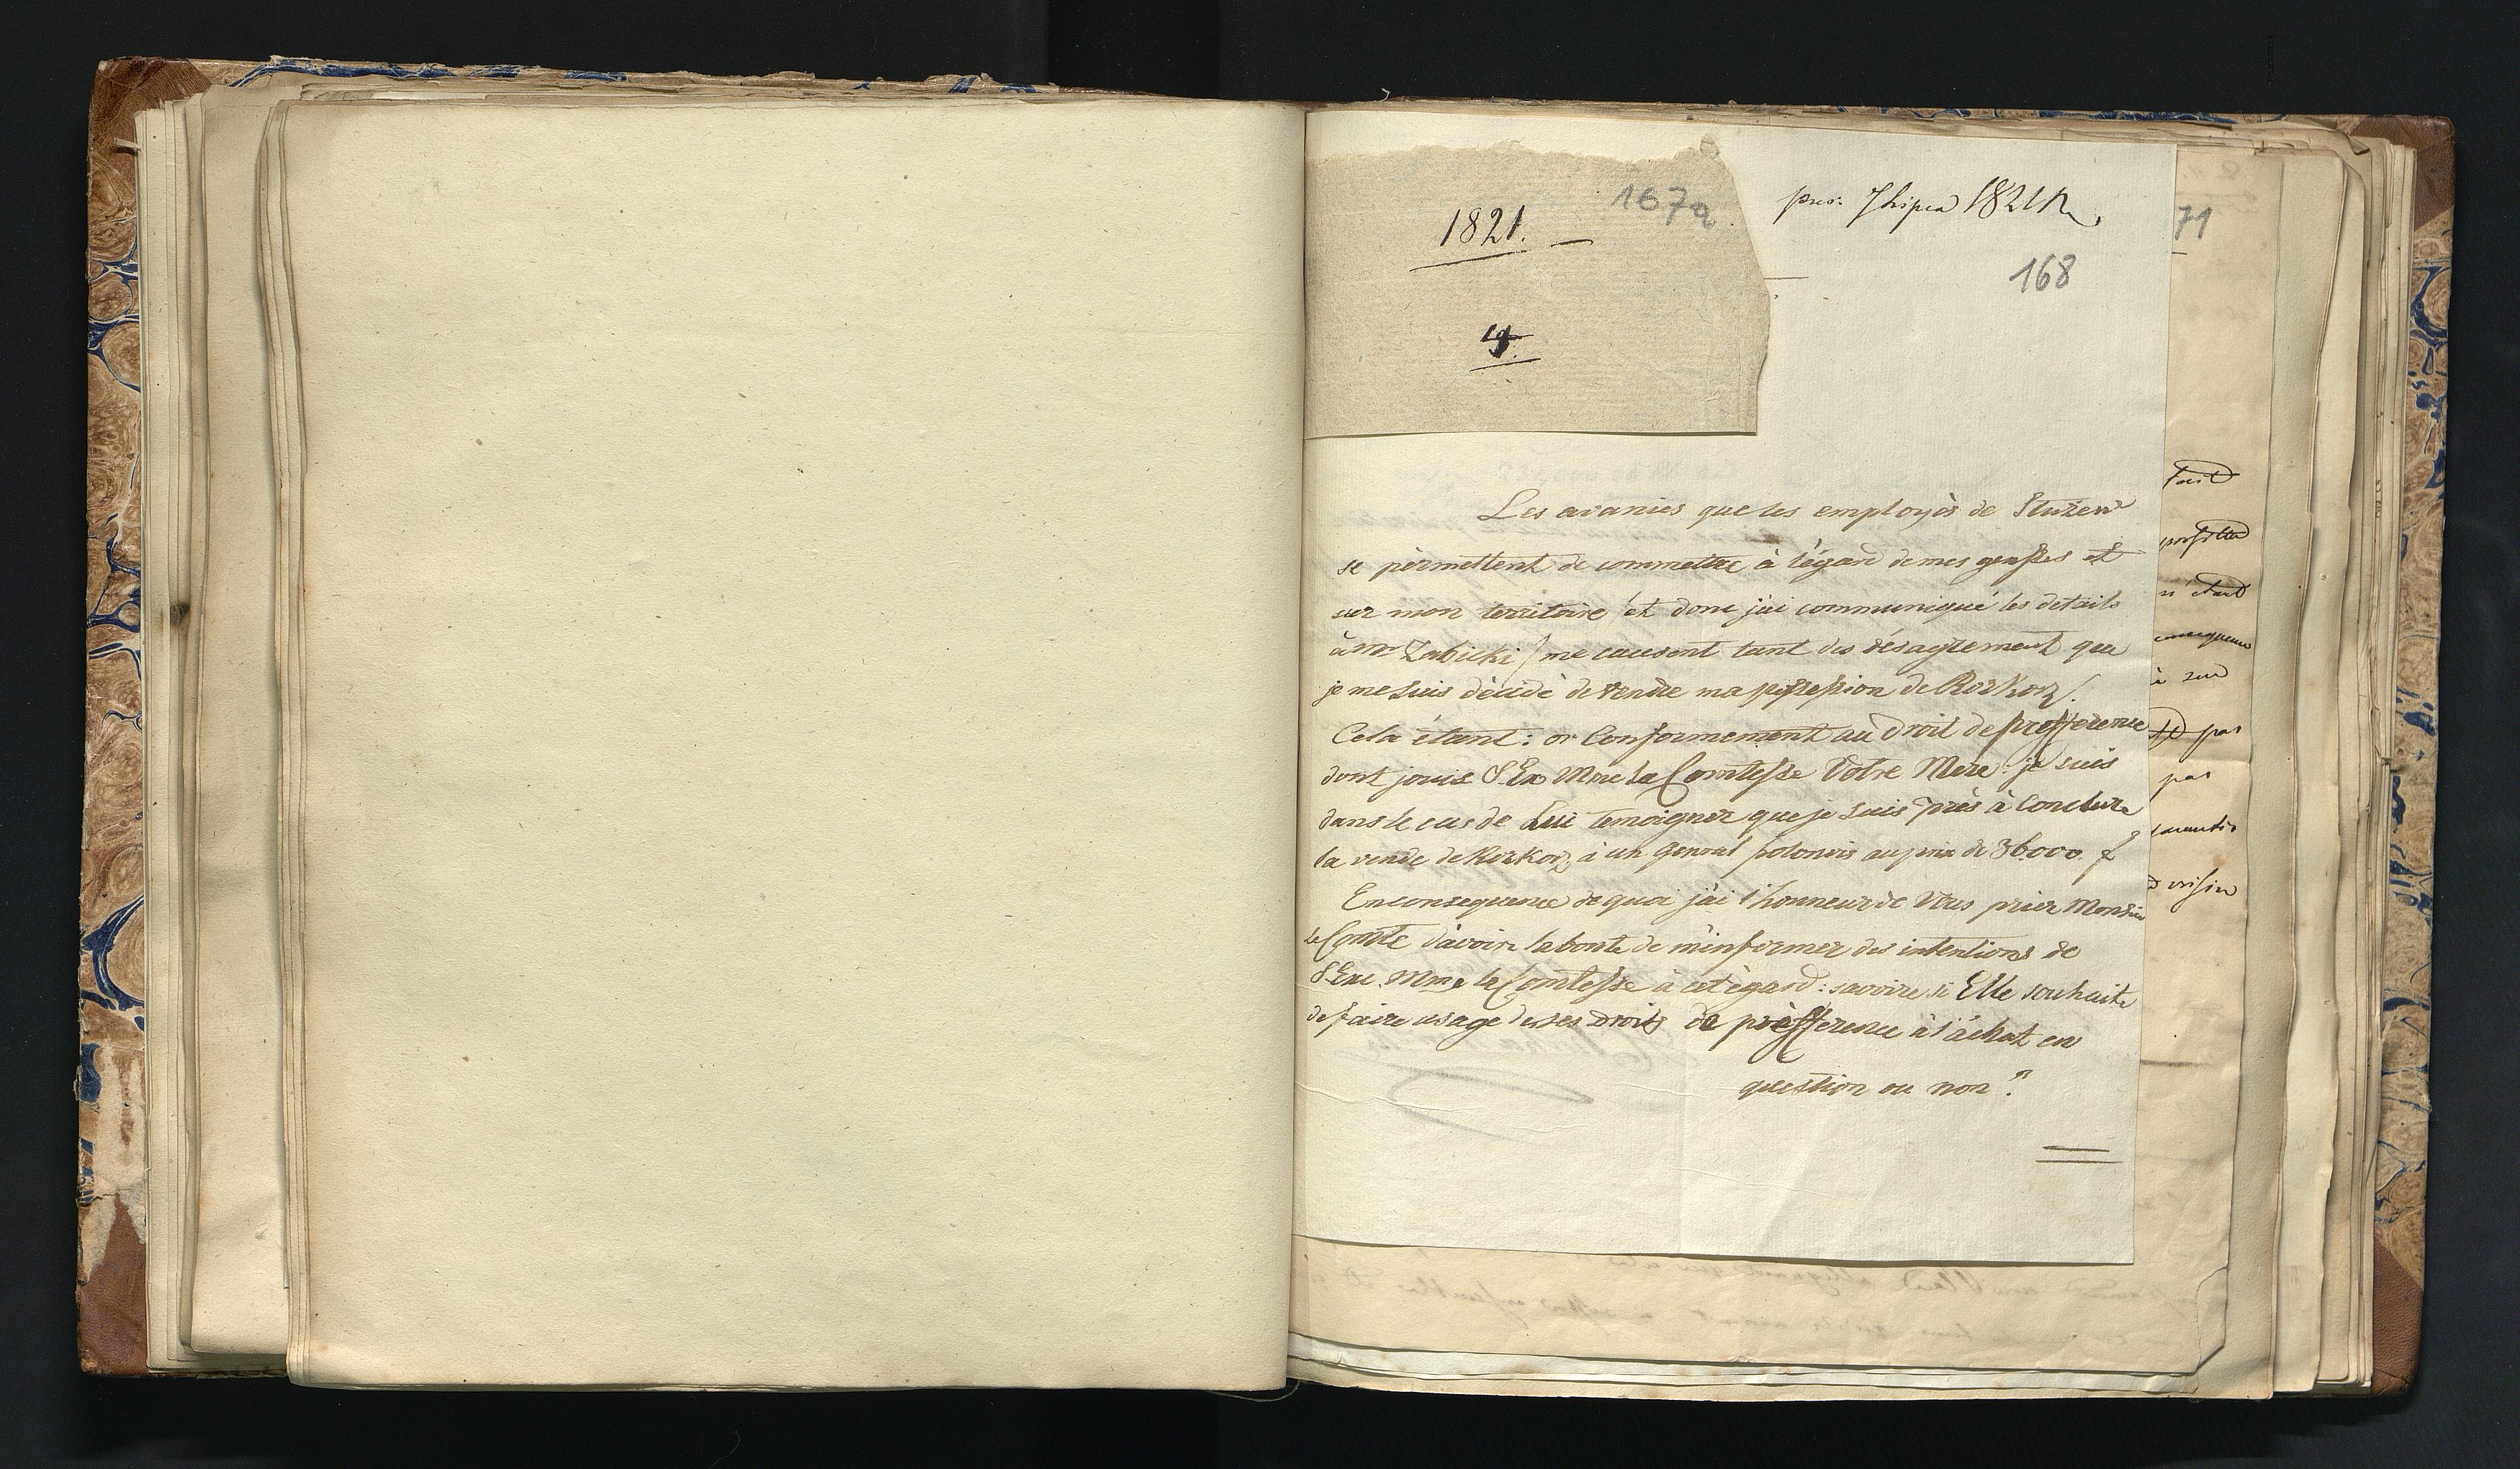 1821. —
167a
4.
pres. 7 Lipca 1821 R.
168
71
Les avanies que les employés de Služew
se pèrmettent de commettre à l'égard de mes gensses et
sur mon territoire /et donc j'ai communiqué les details
à Mr Zabicki / me causent tant des désagrement que
je me suis décidé de vendre ma possession de Rozkosz.
Cela étant: or Conformement au Droit de prefference
dont jouis S. Ex Mme la Comtesse Votre Mere: je suis
dans le cas de Lui temoigner que je suis près à Conclure
la vende de Rozkosz à un General polonois au prix de 36000 f
En consequence de quoi j'ai l'honneur de Vous prier Monsieur
le Comte d'avoir la bonte de m'informer des intentions de
S. Exc. Mme la Comtesse à cet ègard: savoire si Elle souhaite
de faire usage de ses Droits de prèfference à l'àchat en
question ou non?
n'étant
par
pas